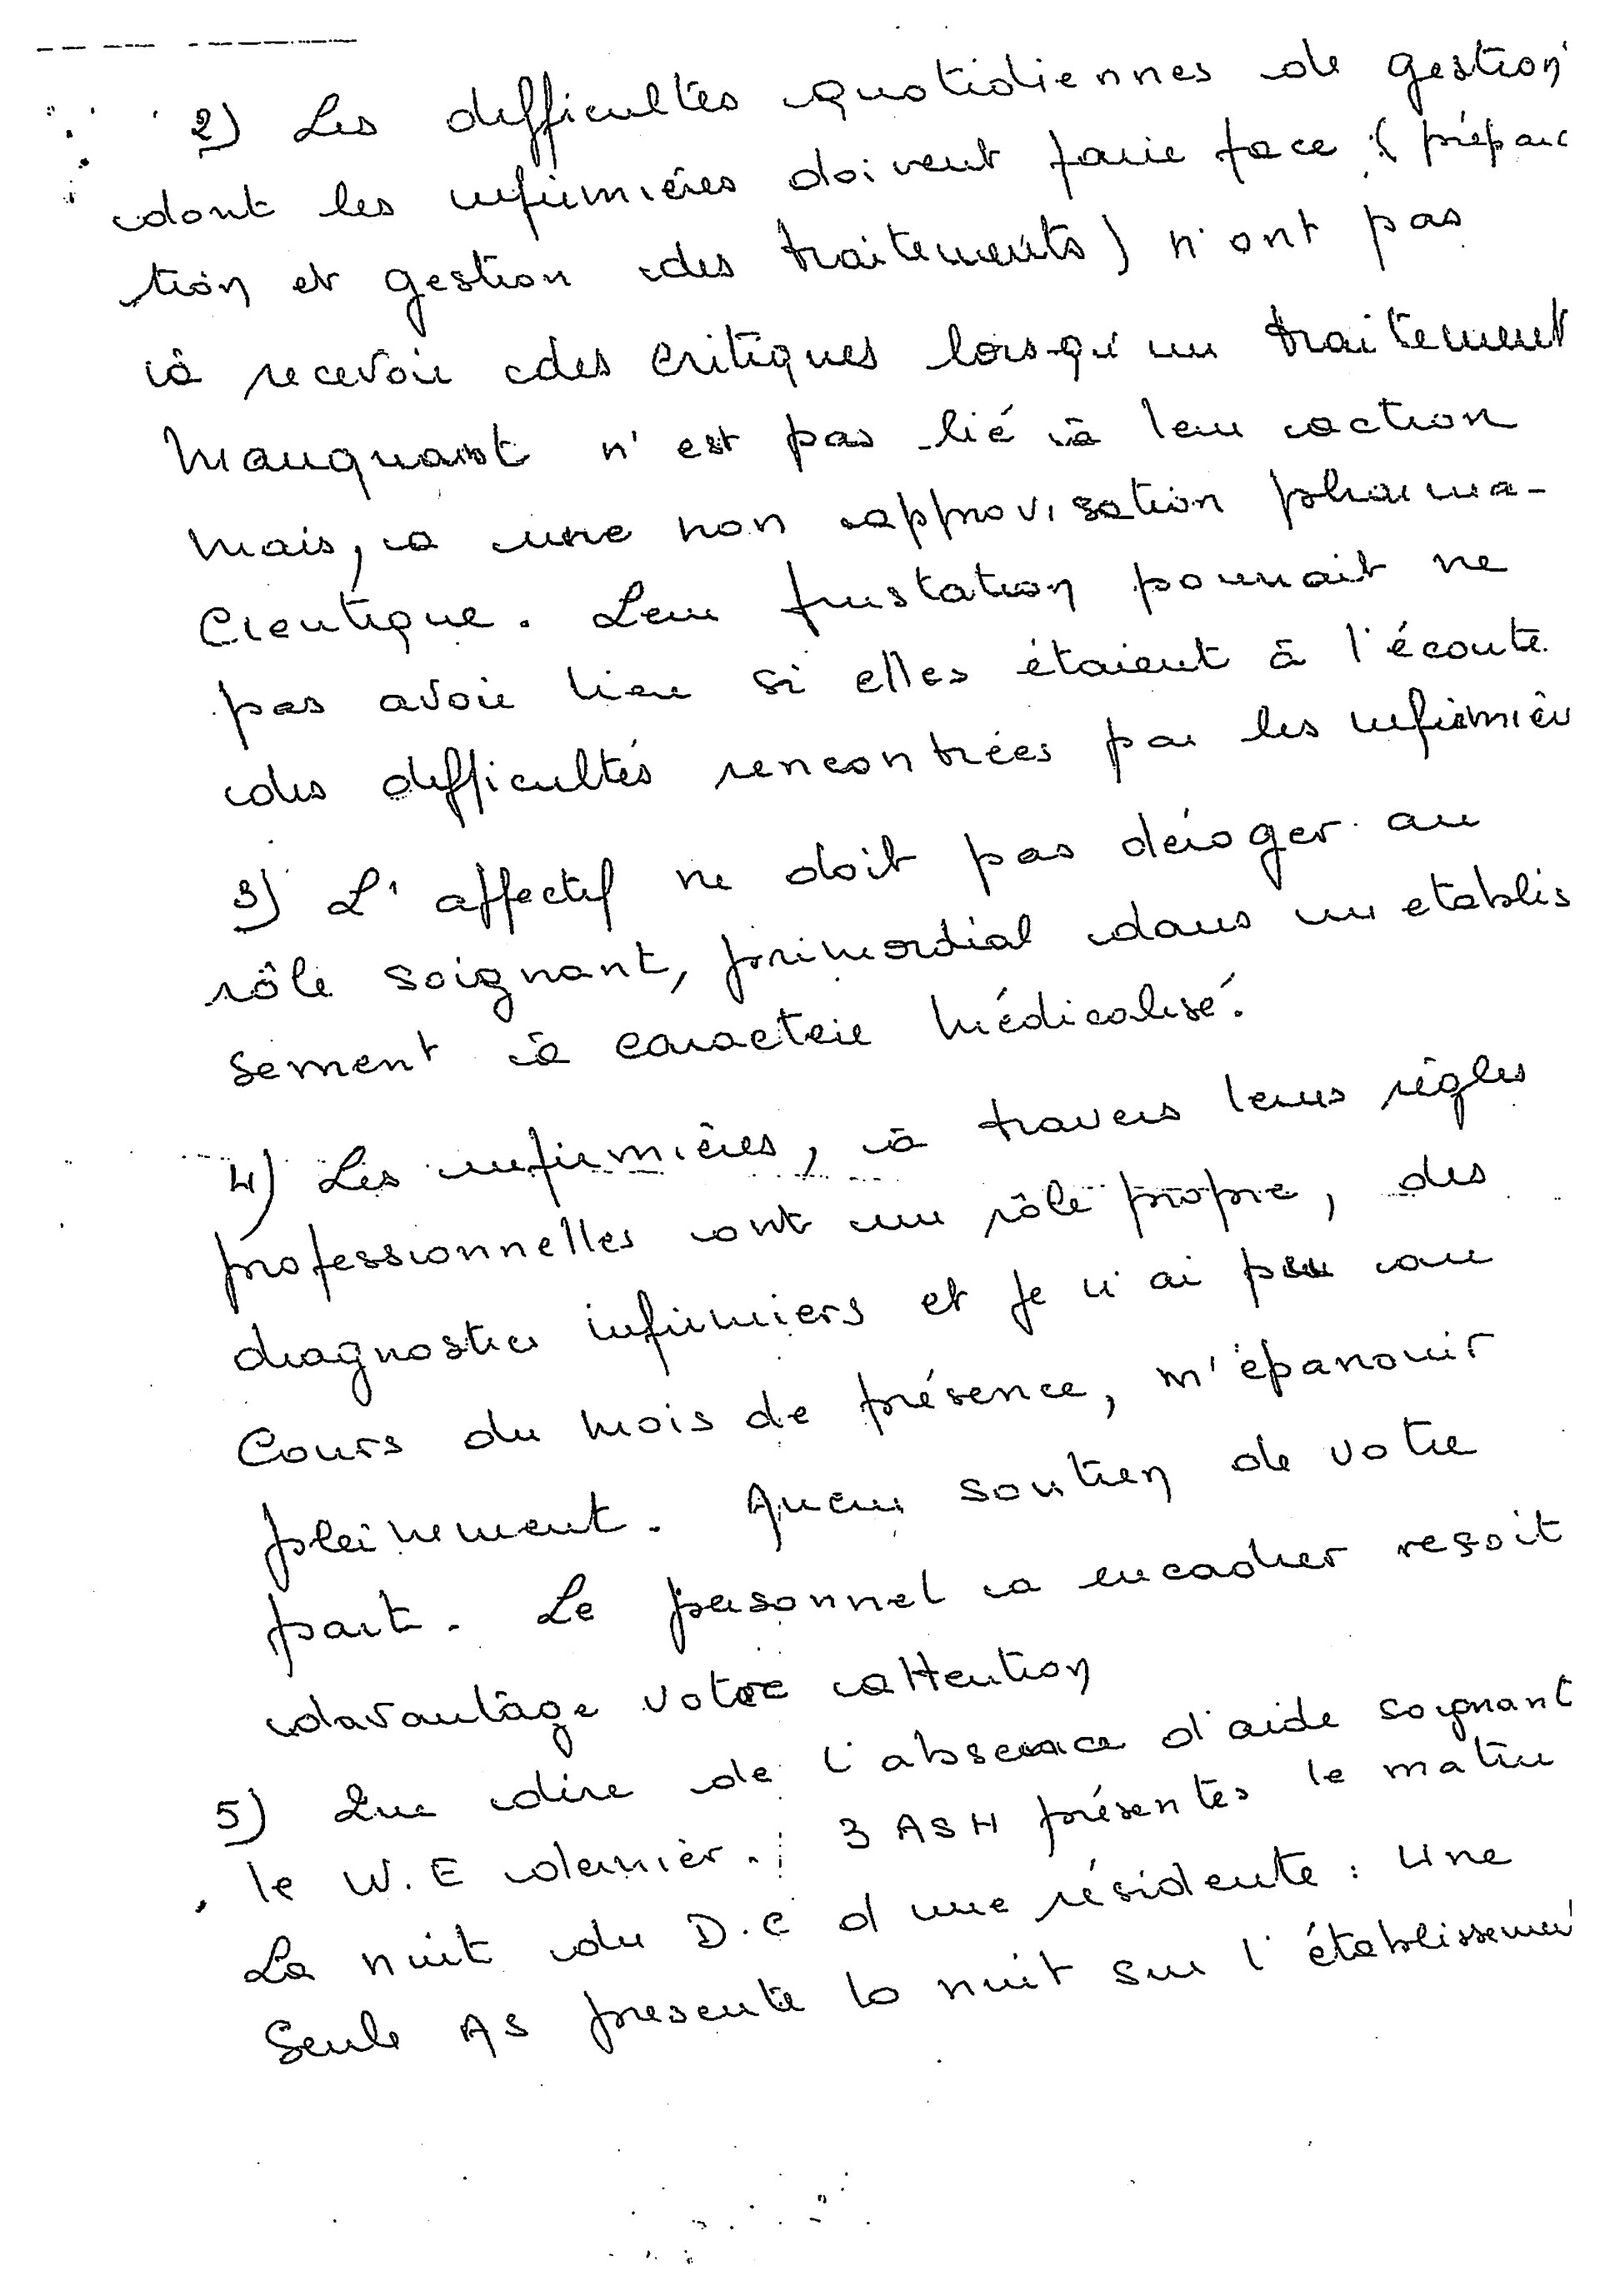 2) Les difficultés quotidiennes de gestion
dont les infirmières doivent faire face (prépara
tion et gestion des traitements) n'ont pas
à recevoir des critiques lorsqu'un traitement
manquant n'est pas lié à leur action
mais, à une non approvisation pharma-
cieutique. Leur frustation pourrait ne
pas avoir lieu si elles étaient à l'écoute
des difficultés rencontrées par les infirmièr
3) L'affectif ne doit pas déroger au
rôle soignant, primordial dans un etablis
sement à caractère médicalisé.
4) Les infirmières, à travers leurs règles
professionnelles ont un rôle propre, des
diagnostics infirmiers et je n'ai pu au
cours du mois de présence, m'épanouir
pleinement. Aucun soutien de votre
part. Le personnel à encadrer reçoit
davantage votre attention
5) Que dire de l'absence d'aide soignant
le W.E dernier. 3 ASH présentes le matin
La nuit du D.C d'une résidente : Une
Seule AS presente la nuit sur l'établissement